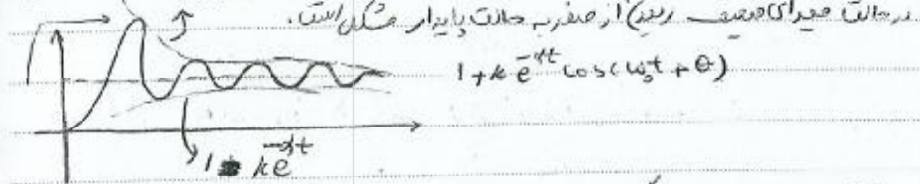 در حالت میرای ضعیف رسیدن از صفر به حالت پایدار مشکل است.
1 + k e^{-αt} cos(ω₀t + θ)
1 k e^{-αt}